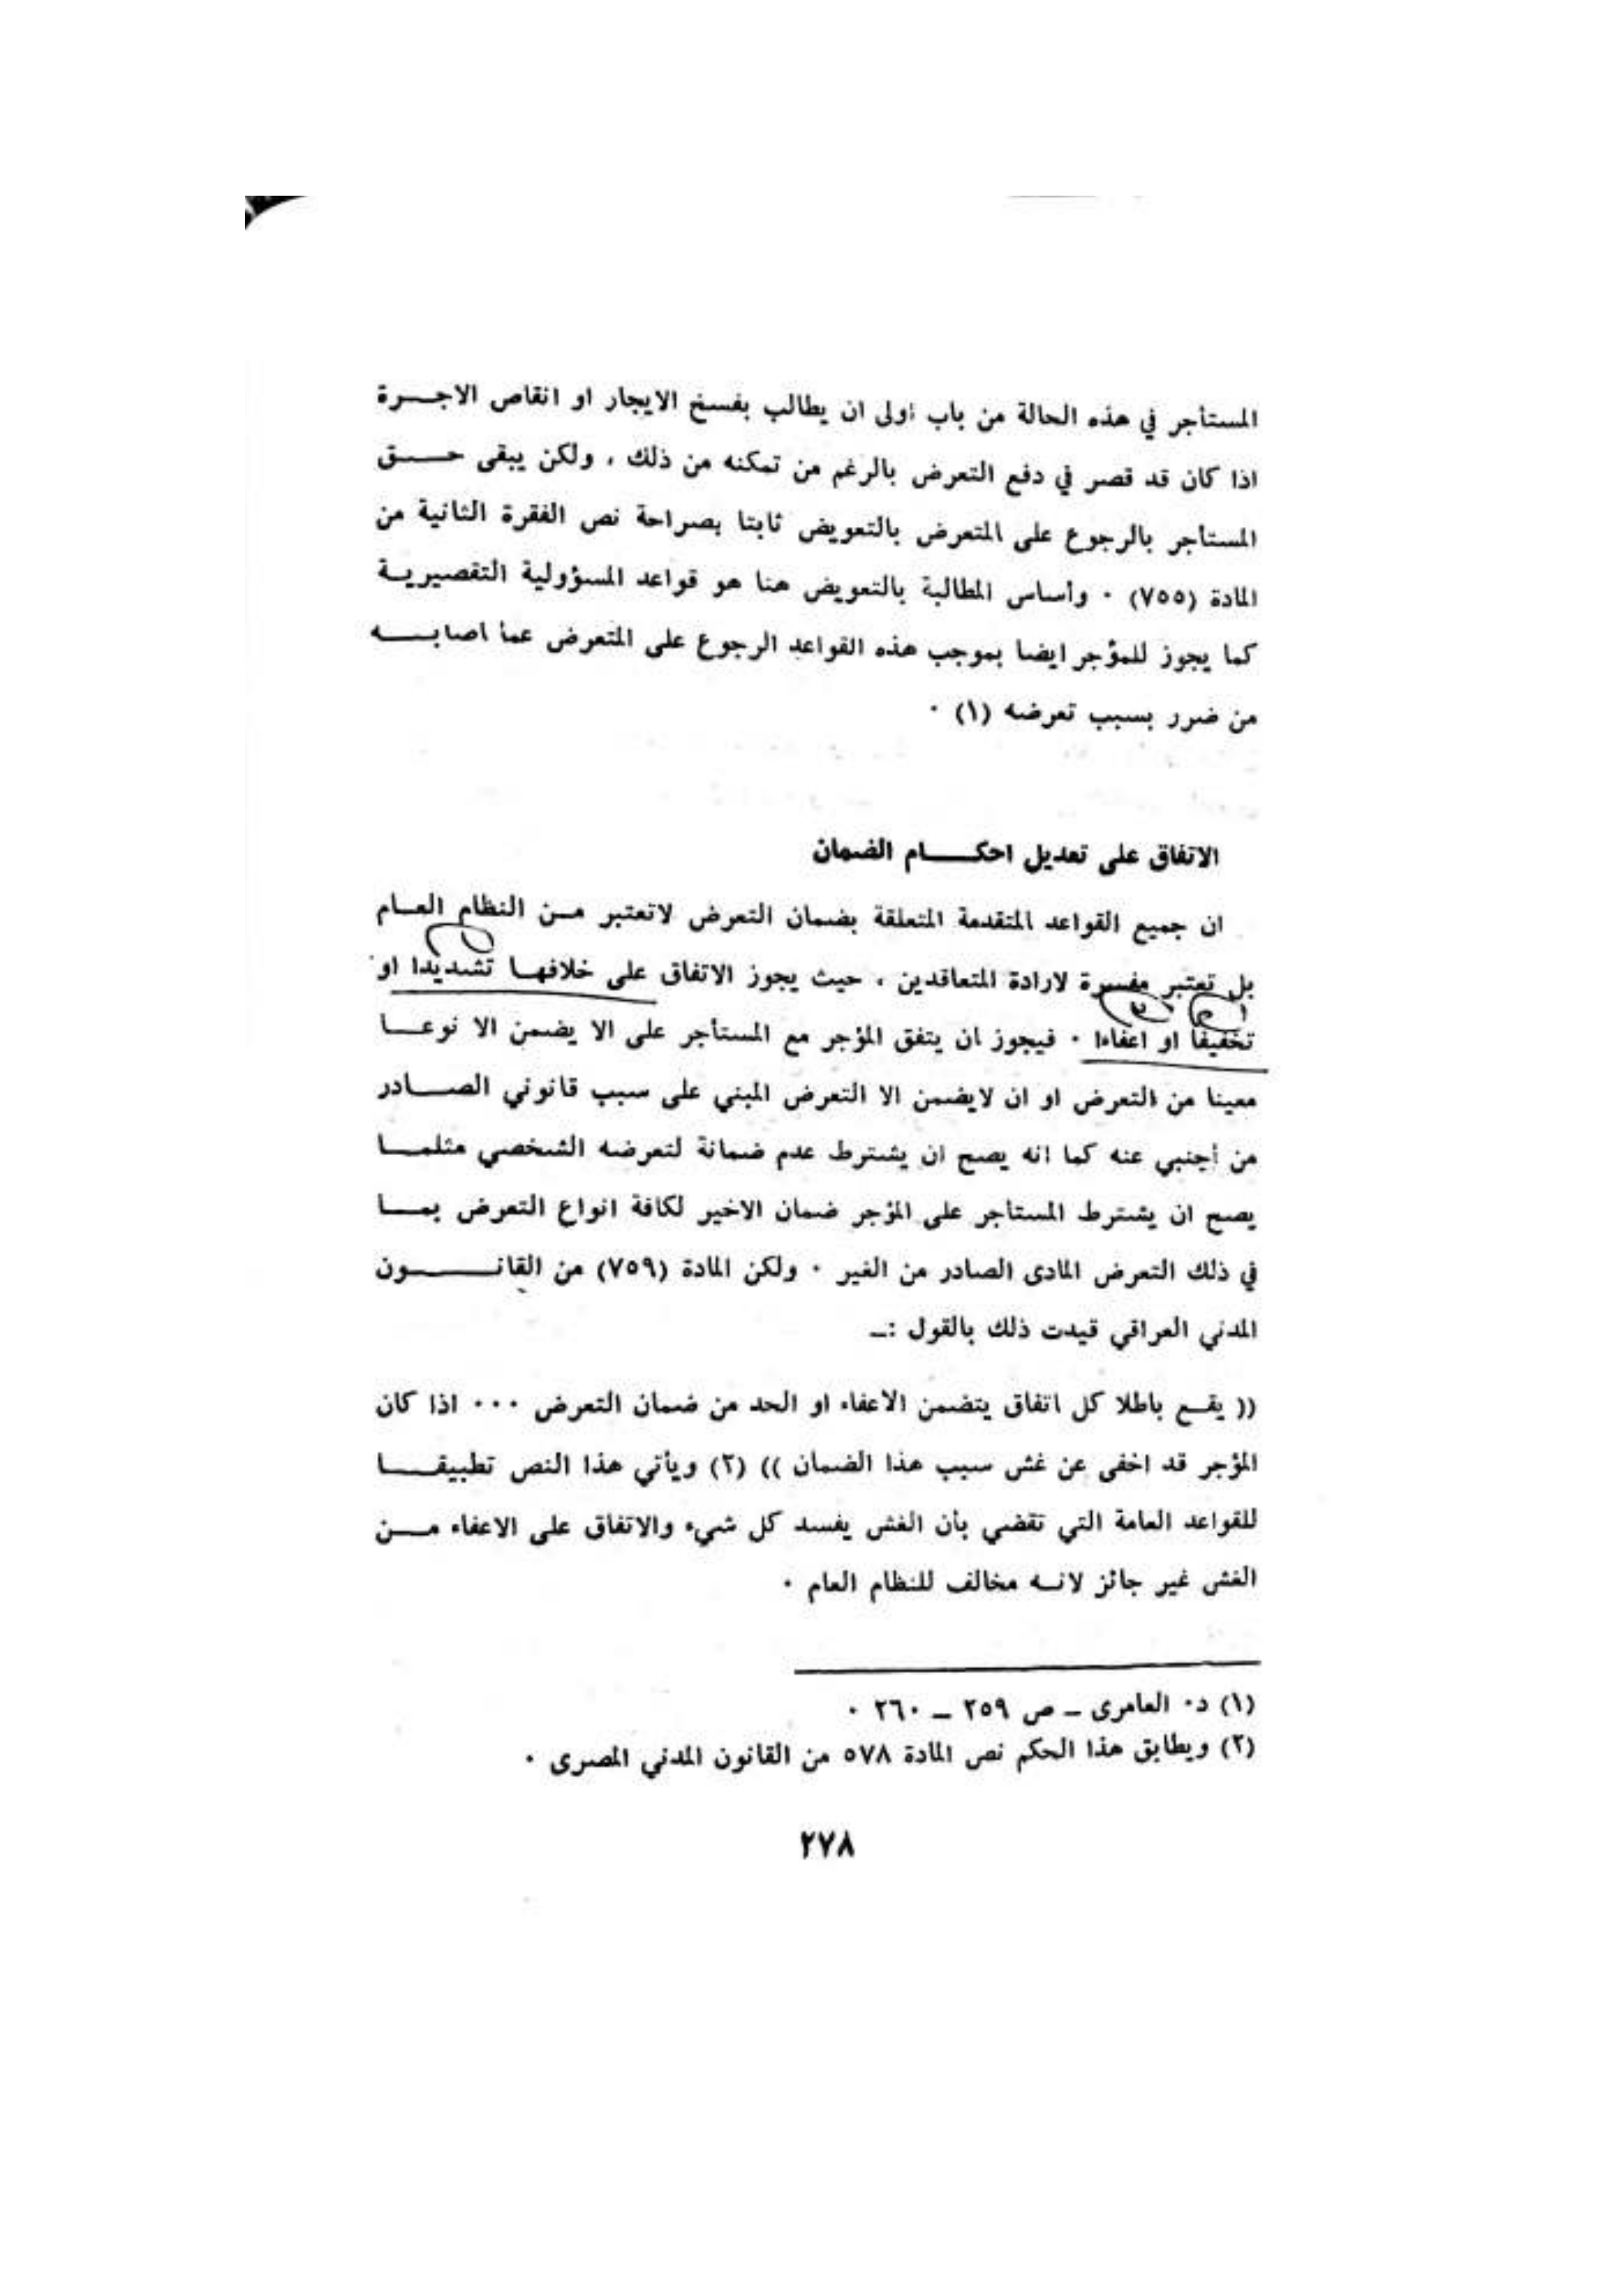 المستأجر في هذه الحالة من باب اولى ان يطالب بفسخ الايجار او انقاص الاجـــرة
اذا كان قد قصر في دفع التعرض بالرغم من تمكنه من ذلك ، ولكن يبقى حـــق
المستأجر بالرجوع على المتعرض بالتعويض ثابتا بصراحة نص الفقرة الثانية من
المادة (٧٥٥) ٠ وأساس المطالبة بالتعويض هنا هو قواعد المسؤولية التقصيريـة
كما يجوز للمؤجر ايضا بموجب هذه القواعد الرجوع على المتعرض عما اصابـــه
من ضرر بسبب تعرضه (١) ٠
الاتفاق على تعديل احكــــام الضمان
ان جميع القواعد المتقدمة المتعلقة بضمان التعرض لاتعتبر مــن النظام العــام
بل تعتبر مفسرة لارادة المتعاقدين ، حيث يجوز الاتفاق على خلافهــا تشديدا او
تخفيفا او اعفاءا ٠ فيجوز ان يتفق المؤجر مع المستأجر على الا يضمن الا نوعــا
معينا من التعرض او ان لايضمن الا التعرض المبني على سبب قانوني الصــــادر
من أجنبي عنه كما انه يصح ان يشترط عدم ضمانة لتعرضه الشخصي مثلمــا
يصح ان يشترط المستاجر على المؤجر ضمان الاخير لكافة انواع التعرض بمــا
في ذلك التعرض المادى الصادر من الغير ٠ ولكن المادة (٧٥٩) من القانـــــون
المدني العراقي قيدت ذلك بالقول :ـ
(( يقــع باطلا كل اتفاق يتضمن الاعفاء او الحد من ضمان التعرض ٠٠٠ اذا كان
المؤجر قد اخفى عن غش سبب هذا الضمان )) (٢) ويأتي هذا النص تطبيقــــا
للقواعد العامة التي تقضي بأن الغش يفسد كل شيء والاتفاق على الاعفاء مــن
الغش غير جائز لانــه مخالف للنظام العام ٠
(١) د٠ العامرى ـ ص ٢٥٩ ـ ٢٦٠ ٠
(٢) ويطابق هذا الحكم نص المادة ٥٧٨ من القانون المدني المصرى ٠
٢٧٨